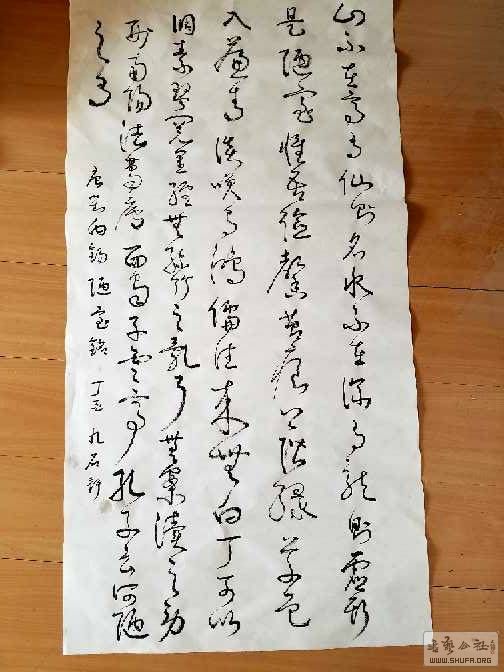 山不在高有仙則名水不在深有龍則靈斯
是陋室惟吾德馨苔痕上階綠草色
入簾青談笑有鴻儒往來無白丁可以
調素琴閱金經無絲竹之亂耳無案牘之勞
形南陽諸葛廬西蜀子雲亭孔子云何陋
之有
唐劉禹錫陋室銘 丁酉
书艺公社
WWW.SHUFA.ORG